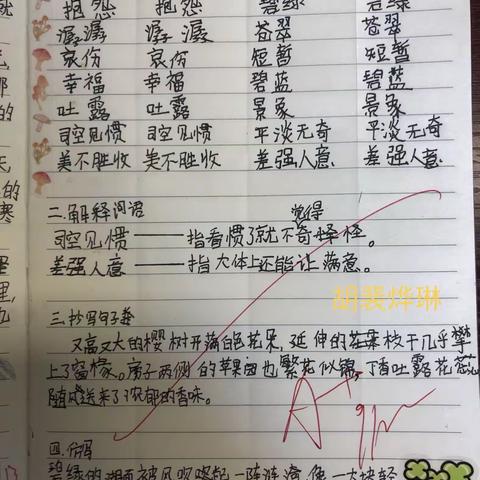 抱怨 抱怨 碧绿 碧绿
潺潺 潺潺 苍翠 苍翠
哀伤 哀伤 短暂 短暂
幸福 幸福 碧蓝 碧蓝
吐露 吐露 景象 景象
司空见惯 司空见惯 平淡无奇 平淡无奇
美不胜收 美不胜收 差强人意 差强人意
二.解释词语
觉得
司空见惯——指看惯了就不奇怪。
差强人意——指大体上还能让满意。
胡裴烨琳
三.抄写句子
又高又大的樱树开满白色花朵,延伸的枝干几乎攀
上了窗檬。房子两侧的苹果园也繁花似锦,丁香吐露花蕊
随风送来了浓郁的香味。
A+
四.仿写
碧绿的湖面被风吹皱起一阵涟漪,像一大块轻